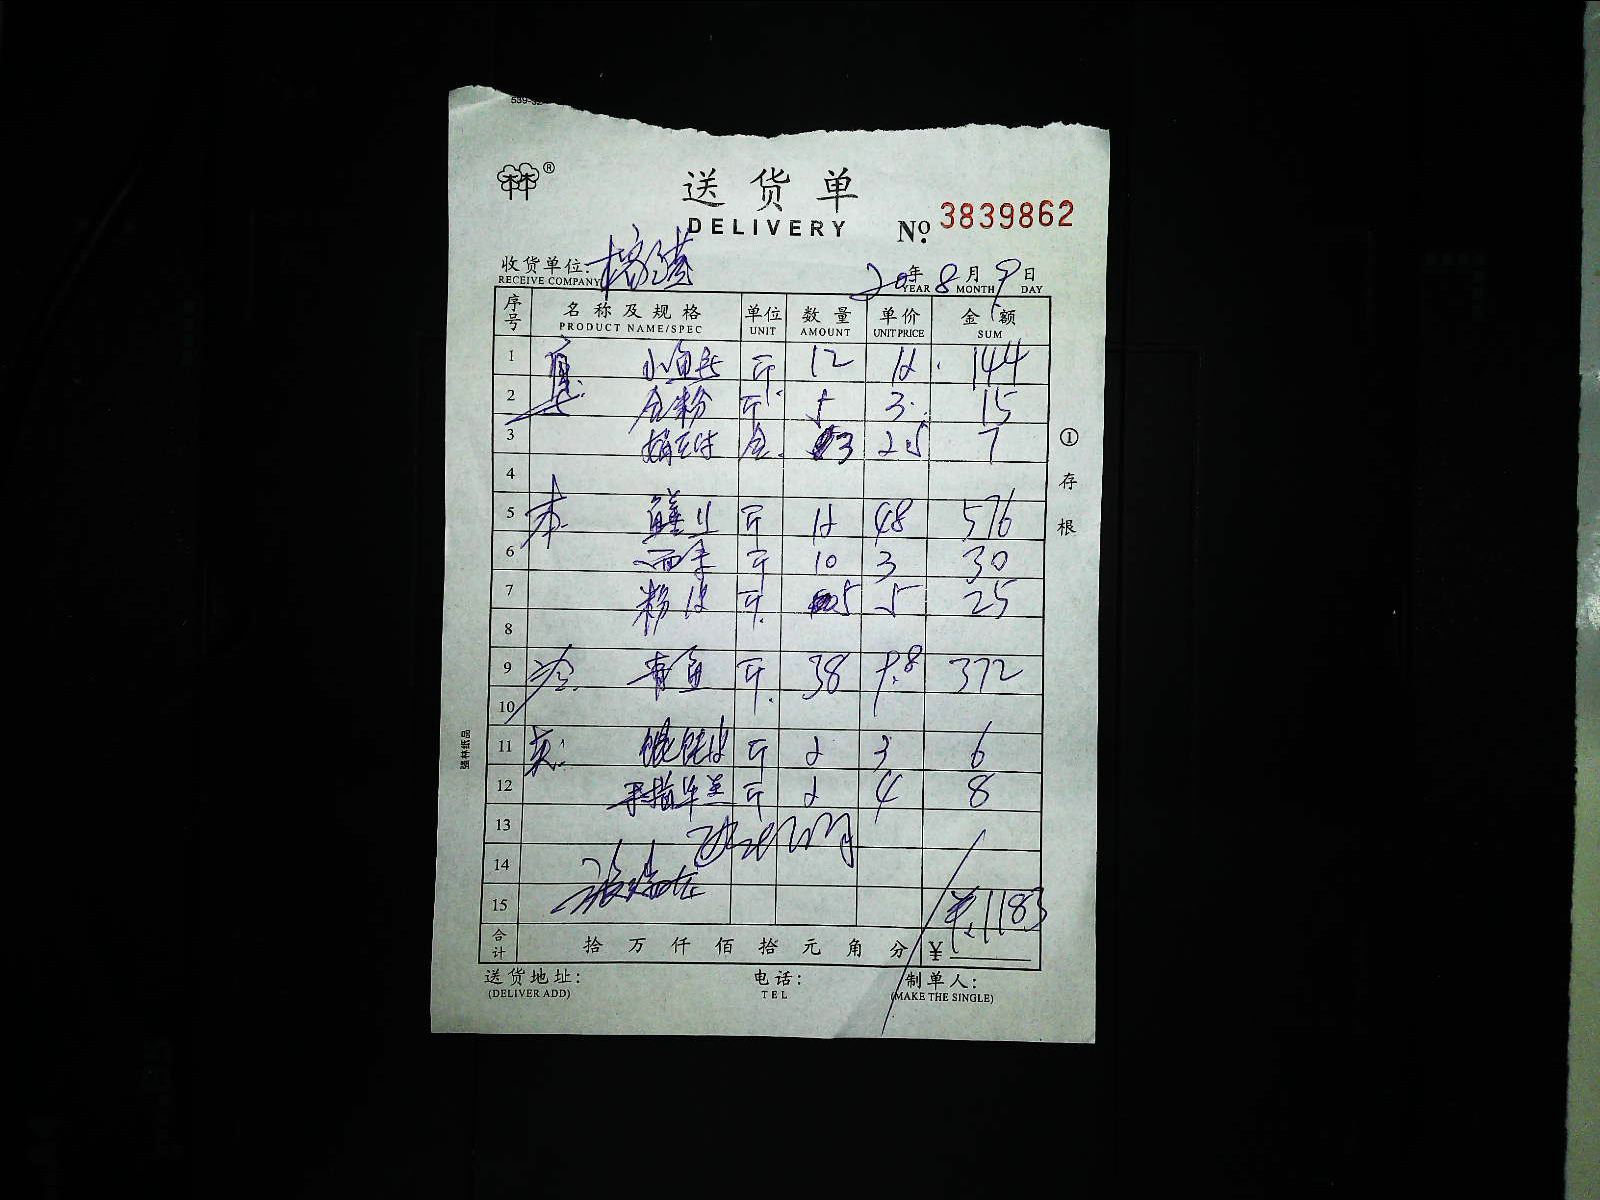 送货单
DELIVERY
№ 3839862
收货单位:
RECEIVE COMPANY
20年 8月 9日
YEAR MONTH DAY
序号 名称及规格 单位 数量 单价 金额
PRODUCT NAME/SPEC UNIT AMOUNT UNIT PRICE SUM
1 小鱼头 斤 12 12 144
2 斤 5 3 15
3 3 2.5 7
4
5 鳝丝 斤 12 48 576
6 斤 10 3 30
7 粉皮 斤 5 5 25
8
9 青鱼 斤 38 9.8 372
10
11 馄饨皮 斤 2 3 6
12 斤 2 4 8
13
14
15 ¥:1183
合计 拾 万 仟 佰 拾 元 角 分 ¥
送货地址: 电话: 制单人:
(DELIVER ADD) TEL (MAKE THE SINGLE)
① 存根
强林纸品